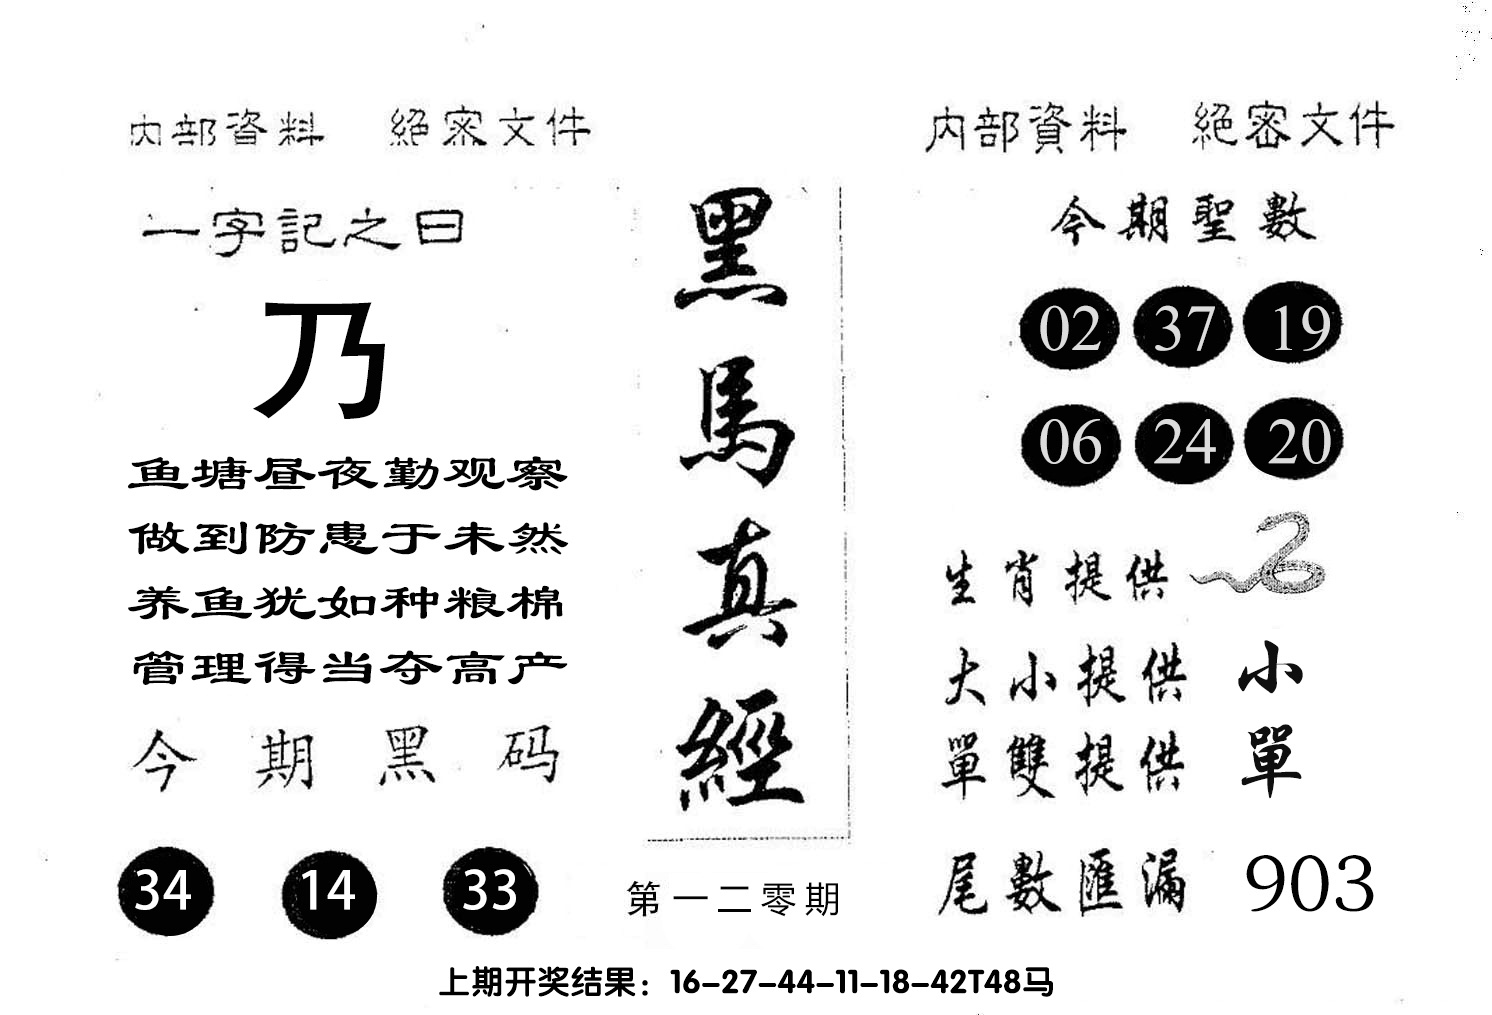 内部資料 絕密文件
一字記之曰
乃
鱼塘昼夜勤观察
做到防患于未然
养鱼犹如种粮棉
管理得当夺高产
今期黑码
34 14 33
黑馬真經
第一二零期
内部資料 絕密文件
今期聖數
02 37 19
06 24 20
生肖提供
大小提供 小
單雙提供 單
尾數匯漏 903
上期开奖结果：16-27-44-11-18-42T48马